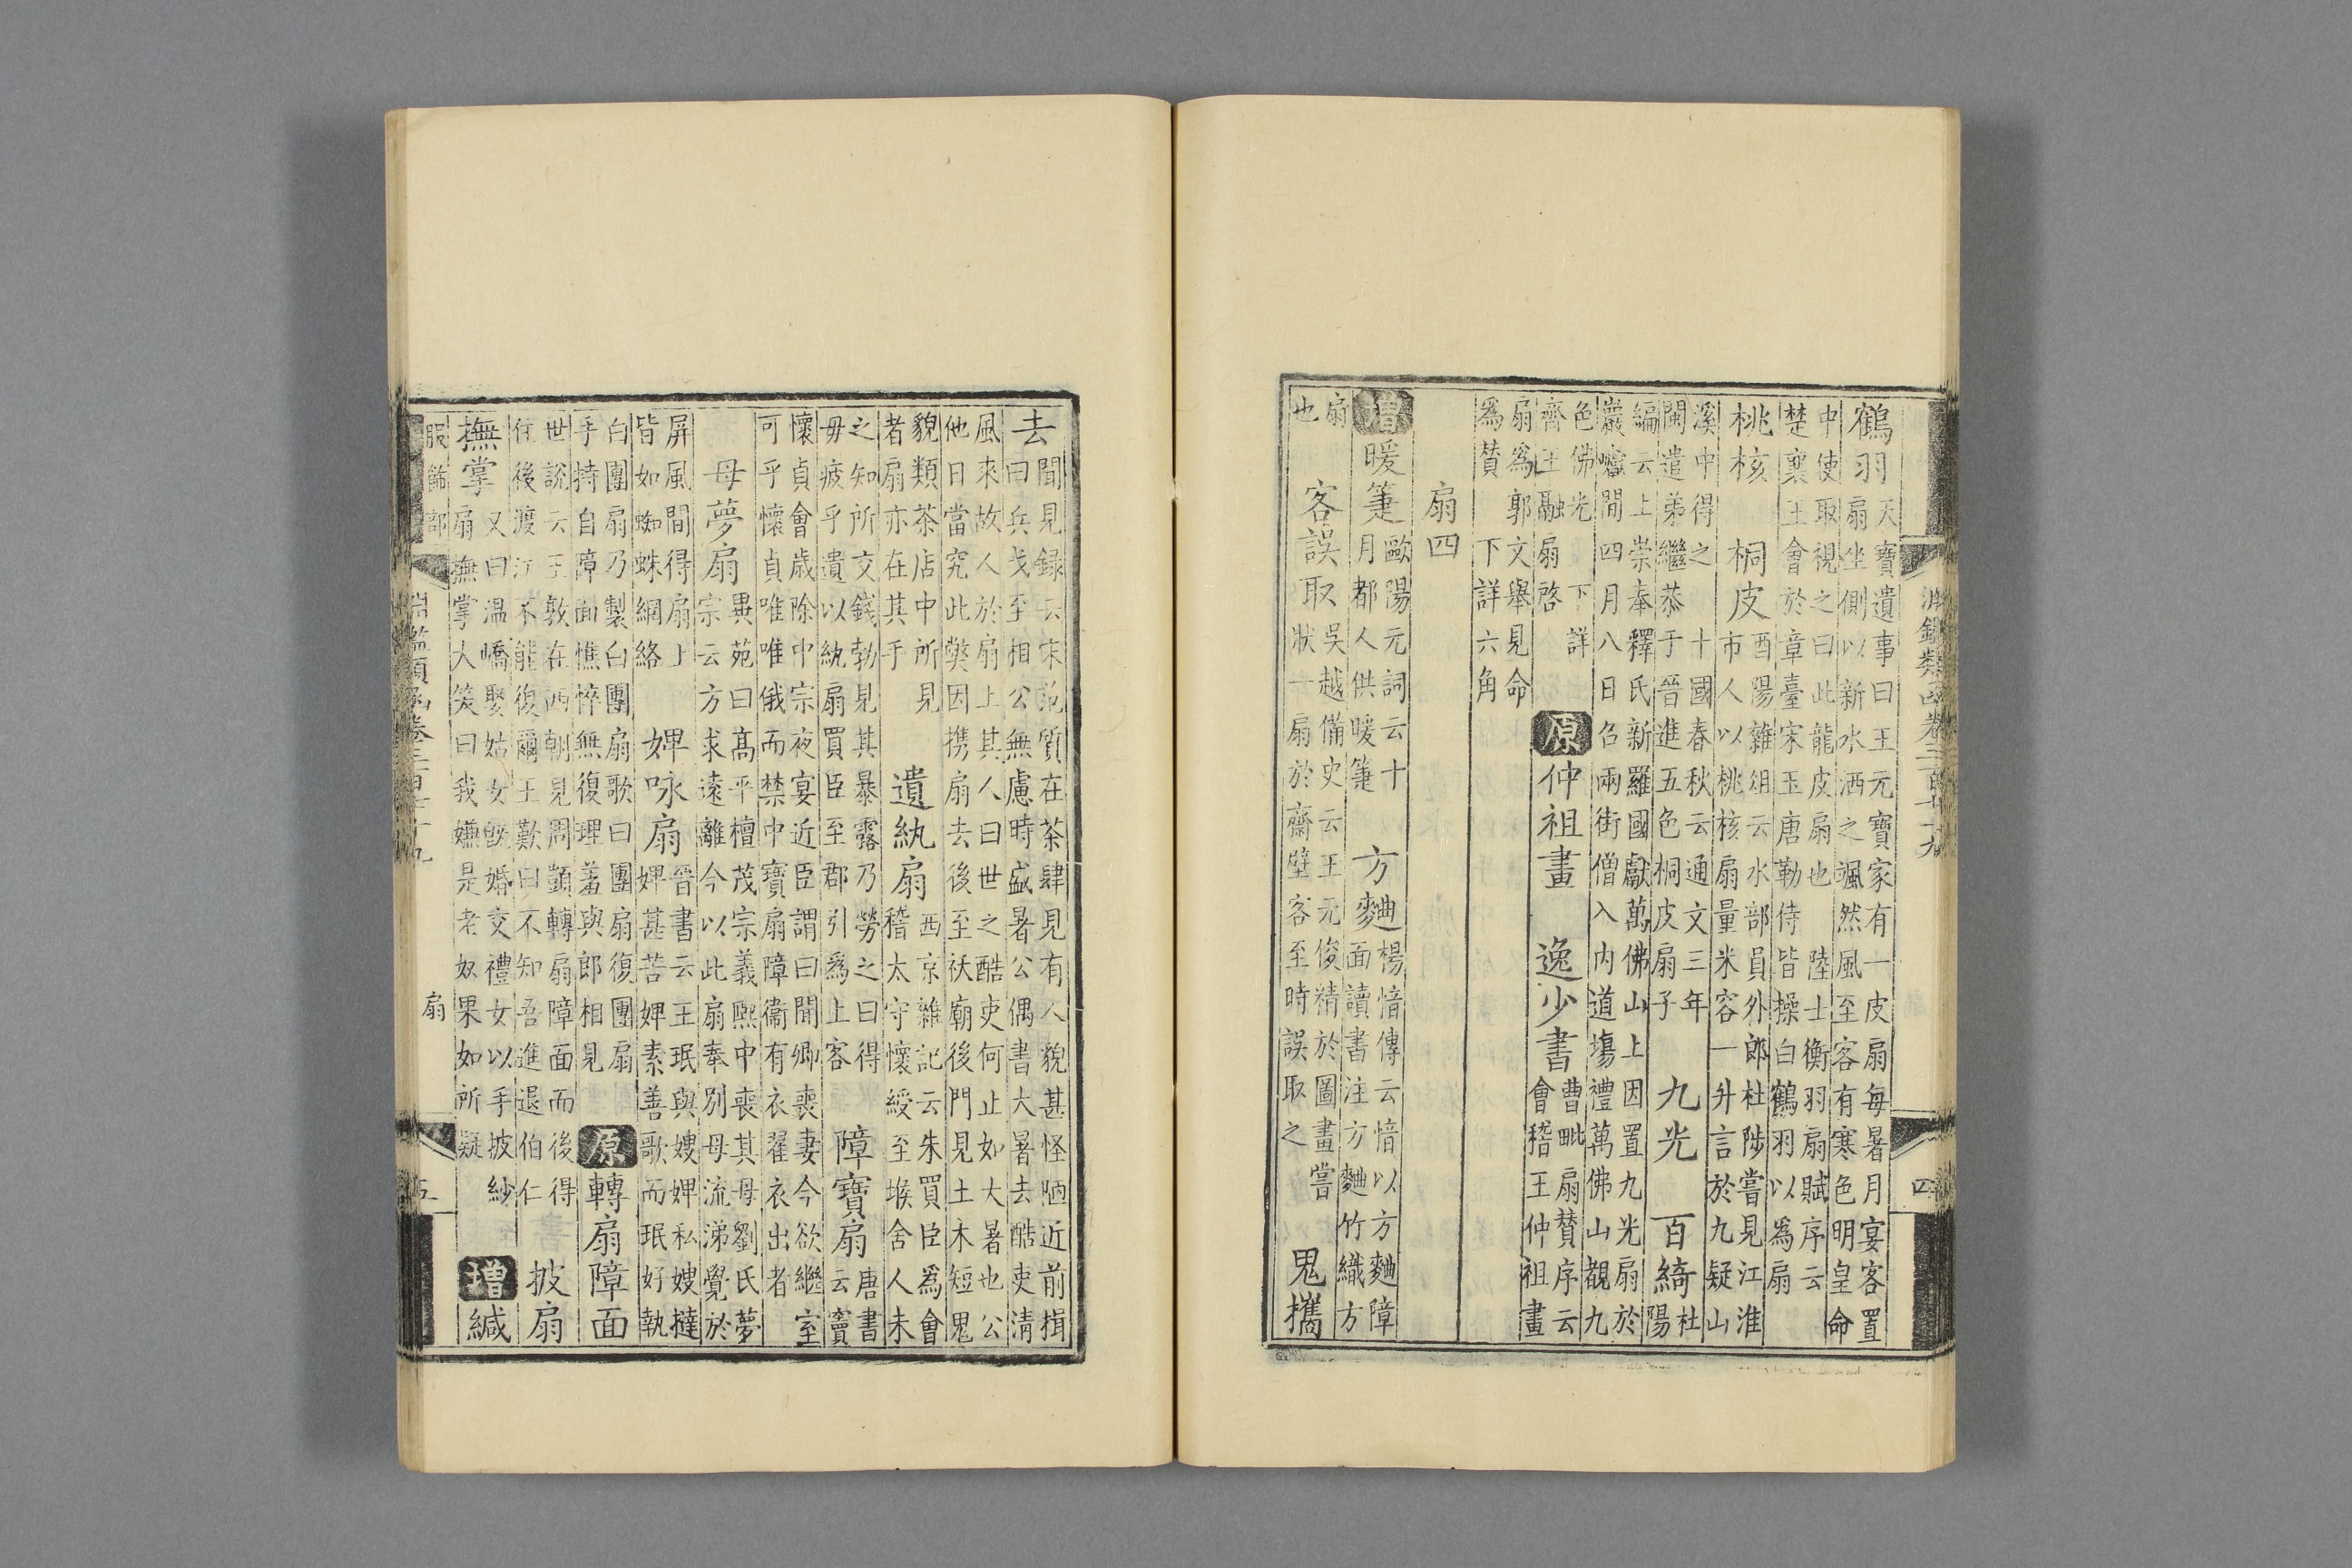 淵鑑類函卷三百七十九 四
鶴羽 天寶遺事曰王元寶家有一皮扇每暑月宴客置
扇坐側以新水洒之颯然風至客有寒色明皇命
中使取視之曰此龍皮扇也 陸士衡羽扇賦序云
楚襄王會於章臺宋玉唐勒侍皆操白鶴羽以為扇
桃核 桐皮 酉陽雜俎云水部員外郎杜陟嘗見江淮
市人以桃核扇量米容一升言於九疑山
溪中得之 十國春秋云通文三年
閩遣弟繼恭于晉進五色桐皮扇子 九光 百綺 杜
陽
編云上崇奉釋氏新羅國獻萬佛山上因置九光扇於
巖巘間四月八日召兩街僧入內道塲禮萬佛山觀九
色佛光 下詳
齊王融扇啓 原 仲祖畫 逸少書 曹毗扇贊序云
會稽王仲祖畫
扇為郭文舉見命
為贊下詳六角
扇四
增 暖箑 歐陽元詞云十
月都人供暖箑 方麯 楊愔傳云愔以方麯障
面讀書注方麯竹織方
扇
也 客誤取 吳越備史云王元俊精於圖畫嘗
狀一扇於齋壁客至時誤取之 鬼攜
去 聞見録云宋范質在茶肆見有人貌甚怪陋近前揖
曰兵戈至相公無慮時盛暑公偶書大暑去酷吏清
風來故人於扇上其人曰世之酷吏何止如大暑也公
他日當究此弊因携扇去後至祅廟後門見土木短鬼
貌類茶店中所見
者扇亦在其手 遺紈扇 西京雜記云朱買臣為會
稽太守懷綬至堠舍人未
之知所交錢勃見其暴露乃勞之曰得
毋疲乎遺以紈扇買臣至郡引為上客 障寶扇 唐書
云竇
懷貞會歲除中宗夜宴近臣謂曰聞卿喪妻今欲繼室
可乎懷貞唯唯俄而禁中寶扇障衞有衣翟衣出者
母夢扇 異苑曰高平檀茂宗義熙中喪其母劉氏夢
宗云方求遠離今以此扇奉別母流涕覺於
屏風間得扇上
皆如蜘蛛網絡 婢咏扇 晉書云王珉與嫂婢私嫂撻
婢甚苦婢素善歌而珉好執
白團扇乃製白團扇歌曰團扇復團扇
手持自障面憔悴無復理羞與郎相見 原 轉扇障面
世說云王敦在西朝見周顗轉扇障面而後得
住後渡江不能復爾王歎曰不知吾進退伯仁 披扇
撫掌 又曰溫嶠娶姑女旣婚交禮女以手披紗
扇撫掌大笑曰我嫌是老奴果如所疑 增 緘
服飾部 淵鑑類函卷三百七十九 扇 五